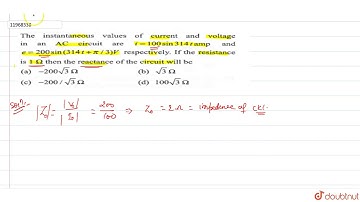 11968350
The instantaneous values of current and voltage
in an AC circuit are i=100 sin 314 t amp and
e = 200 sin (314 t + π / 3)V respectively. If the resistance
is 1 Ω then the reactance of the circuit will be
(a) −200√3 Ω (b) √3 Ω
(c) −200 / √3 Ω (d) 100√3 Ω
Sol^n:- |Z₀| = |V₀| / |I₀| = 200 / 100 ⇒ Z₀ = 2Ω = impedence of ckt.
doubtnut